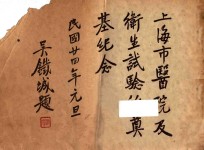 上海市醫院及
衛生試驗 奠
基紀念
民國廿四年元旦
吳鐵城題